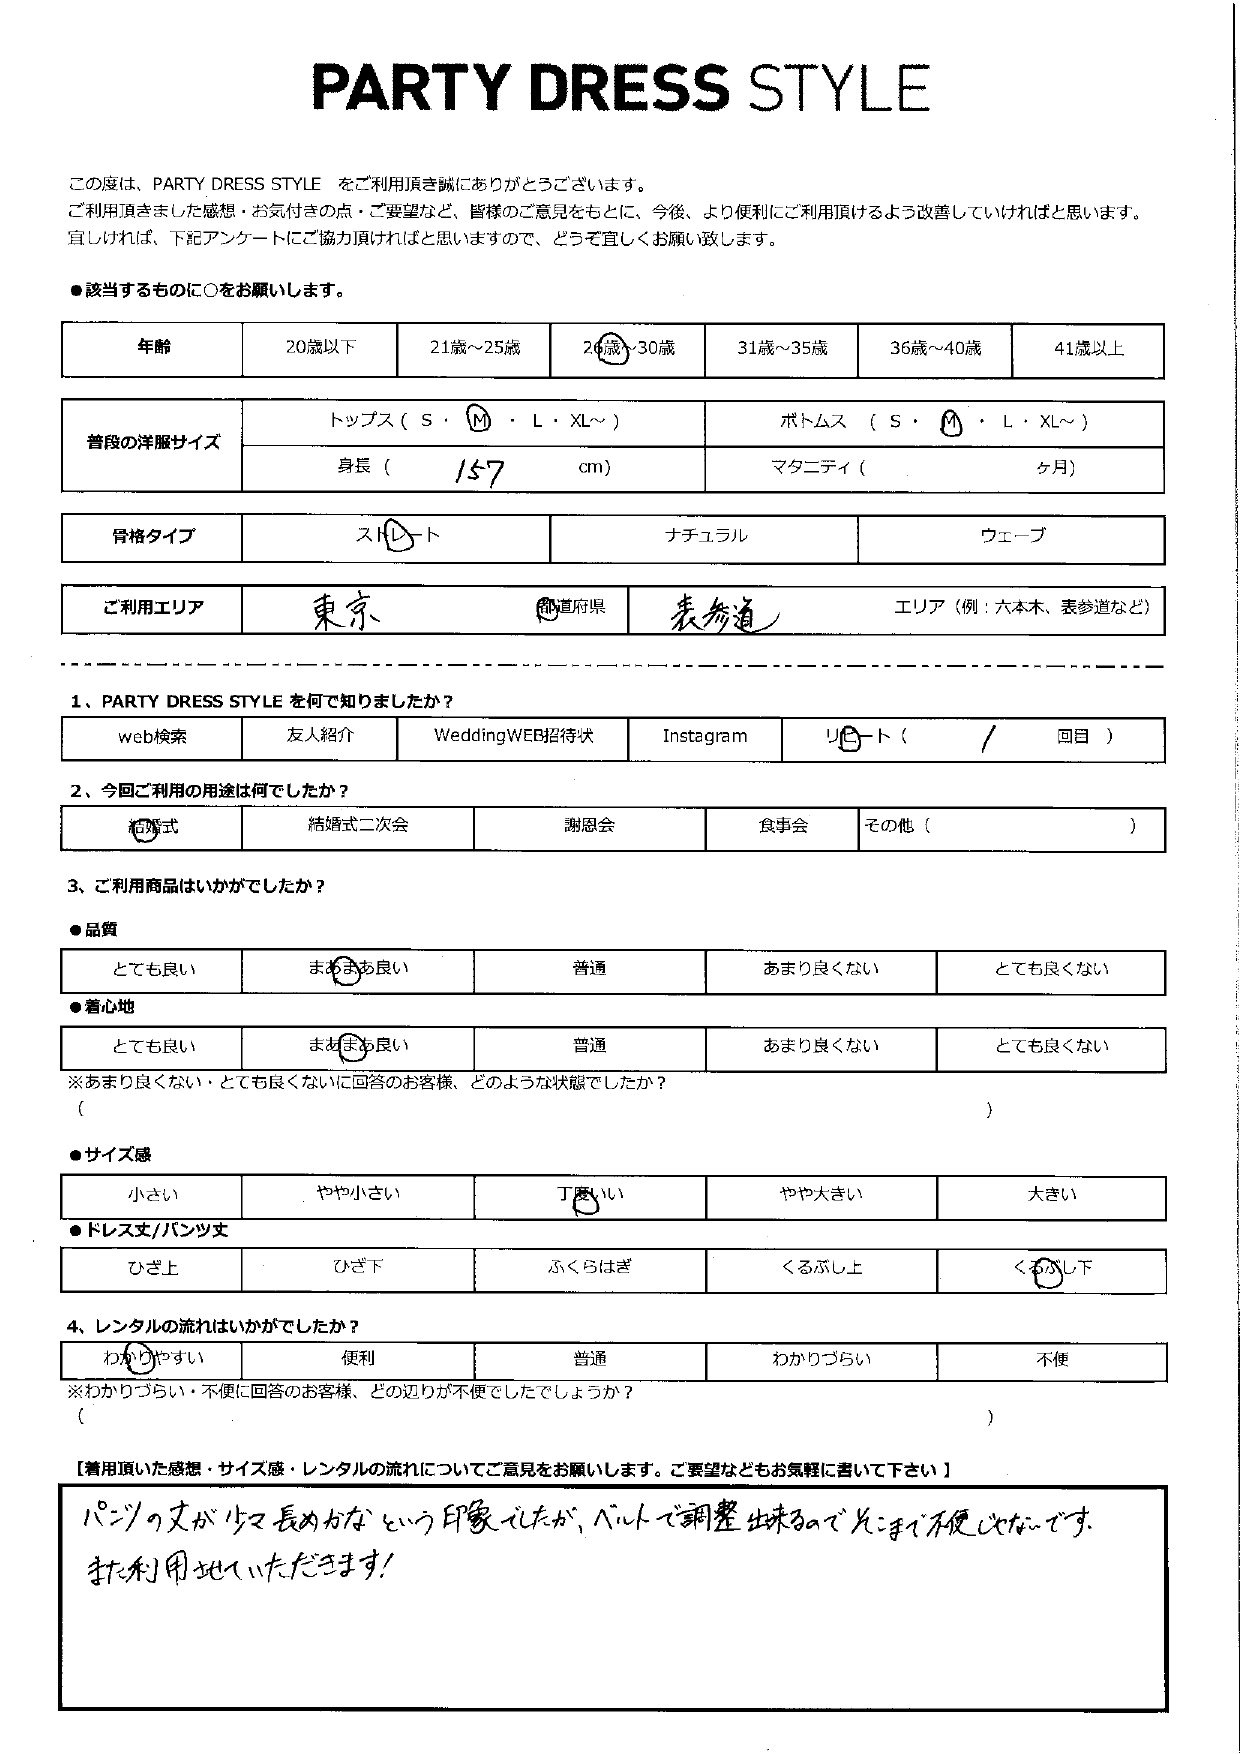 PARTY DRESS STYLE
この度は、PARTY DRESS STYLE　をご利用頂き誠にありがとうございます。
ご利用頂きました感想・お気付きの点・ご要望など、皆様のご意見をもとに、今後、より便利にご利用頂けるよう改善していければと思います。
宜しければ、下記アンケートにご協力頂ければと思いますので、どうぞ宜しくお願い致します。
●該当するものに○をお願いします。
年齢 20歳以下 21歳～25歳 26歳～30歳 31歳～35歳 36歳～40歳 41歳以上
普段の洋服サイズ トップス ( S ・ M ・ L ・ XL～ ) ボトムス ( S ・ M ・ L ・ XL～ )
身長 ( 157 cm) マタニティ ( ヶ月)
骨格タイプ ストレート ナチュラル ウェーブ
ご利用エリア 東京 都道府県 表参道 エリア（例：六本木、表参道など）
1、PARTY DRESS STYLE を何で知りましたか？
web検索 友人紹介 WeddingWEB招待状 Instagram リピート ( / 回目 )
2、今回ご利用の用途は何でしたか？
結婚式 結婚式二次会 謝恩会 食事会 その他 ( )
3、ご利用商品はいかがでしたか？
●品質
とても良い まあまあ良い 普通 あまり良くない とても良くない
●着心地
とても良い まあまあ良い 普通 あまり良くない とても良くない
※あまり良くない・とても良くないに回答のお客様、どのような状態でしたか？
( )
●サイズ感
小さい やや小さい 丁度いい やや大きい 大きい
●ドレス丈/パンツ丈
ひざ上 ひざ下 ふくらはぎ くるぶし上 くるぶし下
4、レンタルの流れはいかがでしたか？
わかりやすい 便利 普通 わかりづらい 不便
※わかりづらい・不便に回答のお客様、どの辺りが不便でしたでしょうか？
( )
【着用頂いた感想・サイズ感・レンタルの流れについてご意見をお願いします。ご要望などもお気軽に書いて下さい 】
パンツの丈が少々長めかなという印象でしたが、ベルトで調整出来るのでそこまで不便じゃないです.
また利用させていただきます!